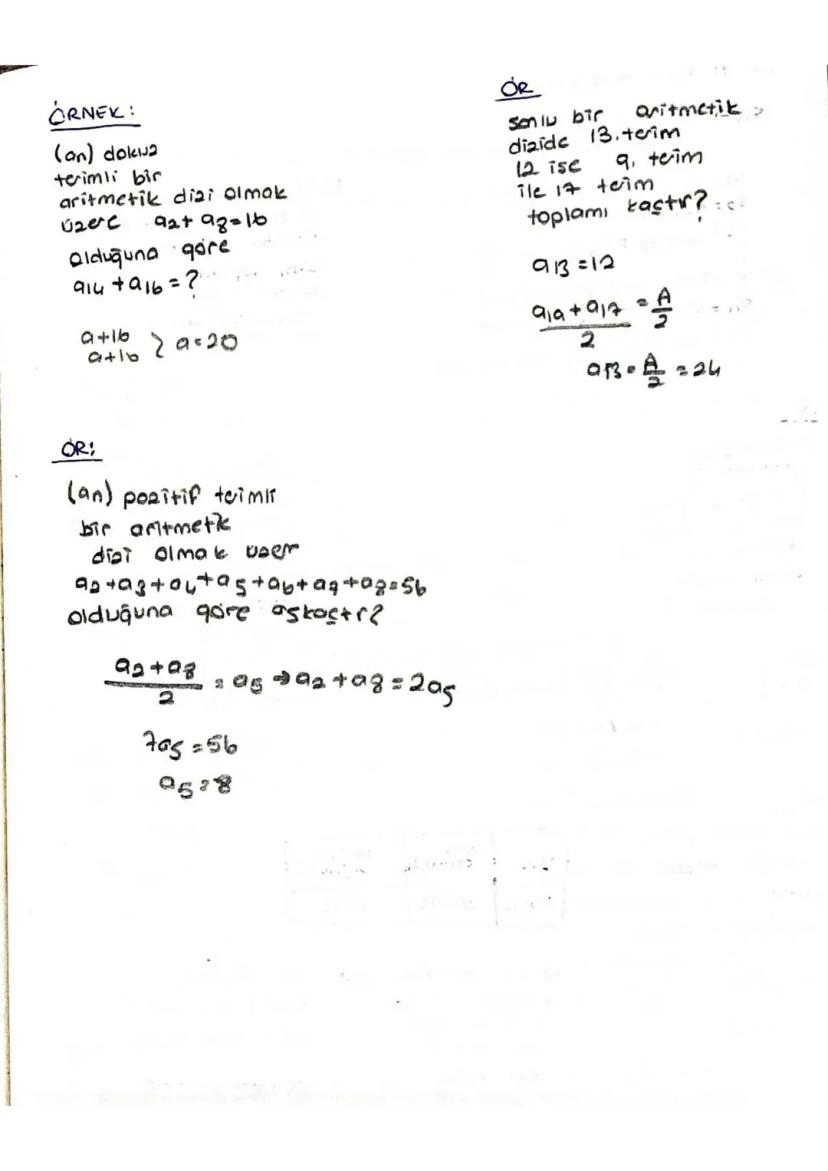 ÖRNEK:
(an) dokuz
terimli bir
aritmetik dizi olmak
üzere a2+ a8=16
olduğuna göre
a14 +a16 = ?
a+16
a+16 } a=20
ÖR
sonlu bir aritmetik
dizide 13.terim
12 ise 9. terim
ile 17 terim
toplamı kaçtır?
a13 =12
a19 + a17 = A
2 2
a13 = A/2 = 24
ÖR:
(an) pozitif terimli
bir aritmetik
dizi olmak üzer
a2+a3+a4+a5+a6+a7+a8=56
olduğuna göre a5kaçtr?
a2+a8
2 = a5 → a2 +a8 = 2a5
7a5 = 56
a5 = 8